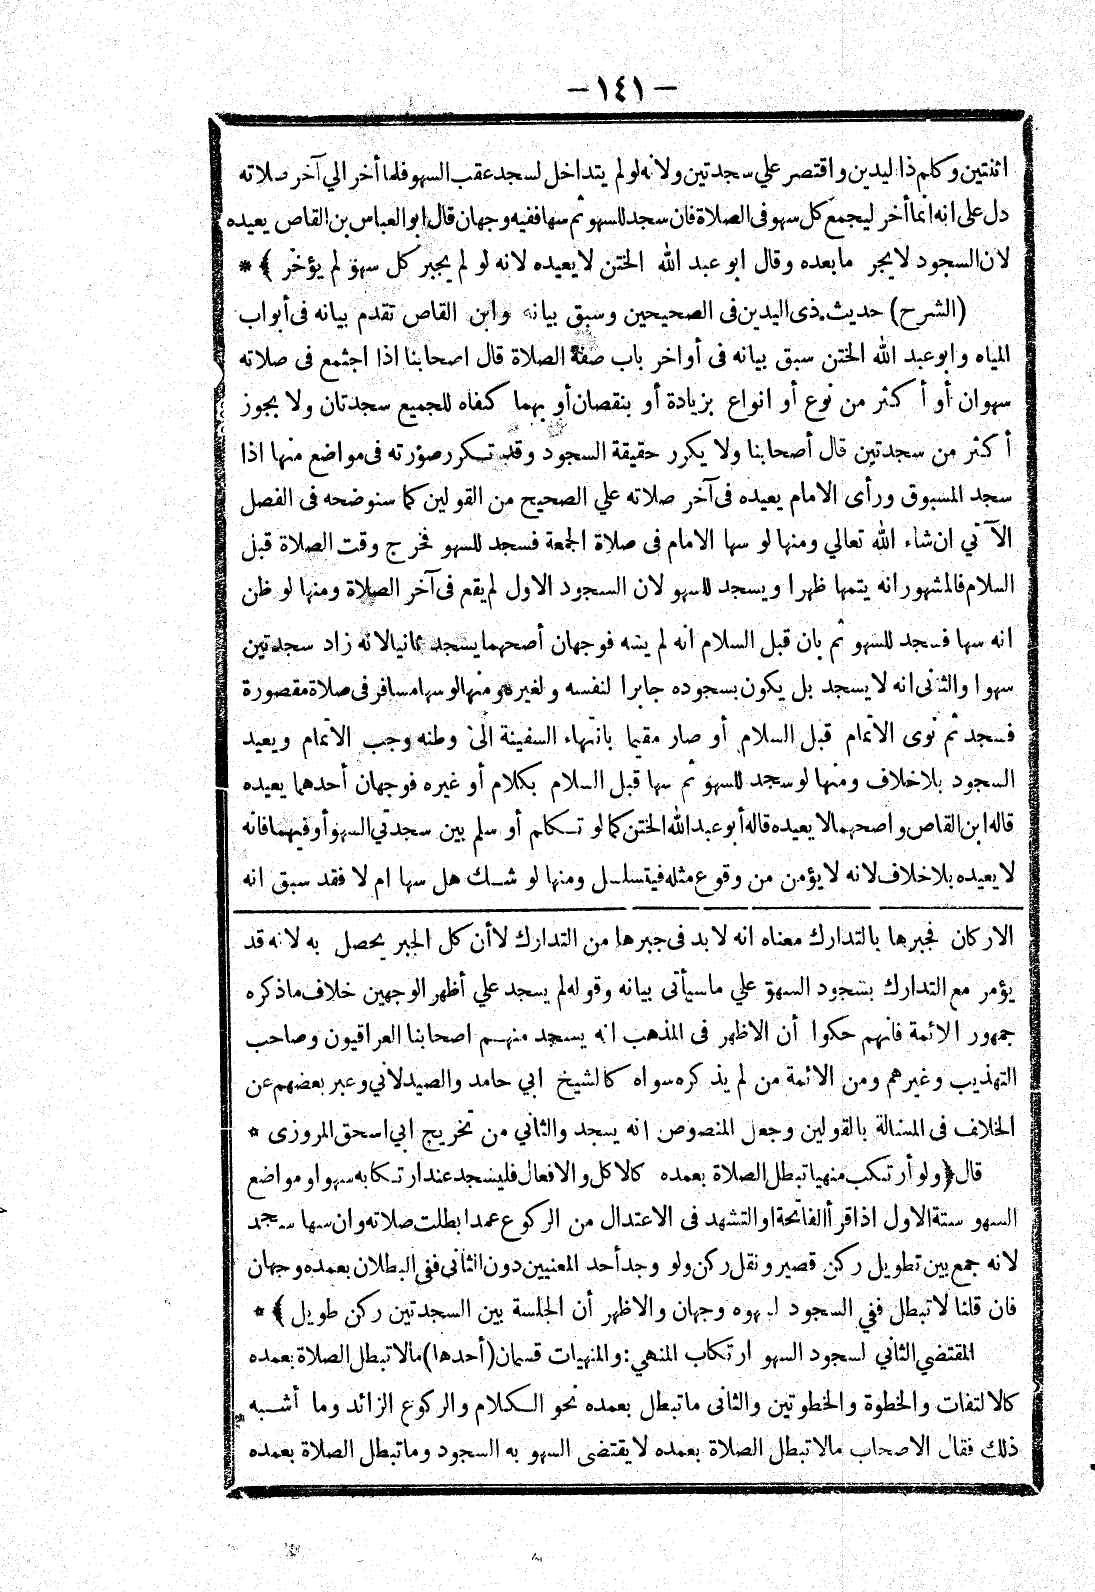 — ١٤١ —
اثنتين وكلم ذا اليدين واقتصر علي سجدتين ولانه لو لم يتداخل لسجد عقب السهو فلما أخر الي آخر صلاته
دل على انه انما أخر ليجمع كل سهو فى الصلاة فان سجد للسهو ثم سها ففيه وجهان قال ابو العباس بن القاص يعيده
لان السجود لا يجبر ما بعده وقال ابو عبد الله الختن لا يعيده لانه لو لم يجبر كل سهو لم يؤخر ﴾ *
(الشرح) حديث ذى اليدين فى الصحيحين وسبق بيانه وابن القاص تقدم بيانه فى أبواب
المياه وابو عبد الله الختن سبق بيانه فى أواخر باب صفة الصلاة قال اصحابنا اذا اجتمع فى صلاته
سهوان أو أكثر من نوع أو انواع بزيادة أو بنقصان أو بهما كفاه للجميع سجدتان ولا يجوز
أكثر من سجدتين قال أصحابنا ولا يكرر حقيقة السجود وقد تكرر صورته فى مواضع منها اذا
سجد المسبوق ورأى الامام يعيده فى آخر صلاته علي الصحيح من القولين كما سنوضحه فى الفصل
الآتي ان شاء الله تعالي ومنها لو سها الامام فى صلاة الجمعة فسجد للسهو فخرج وقت الصلاة قبل
السلام فالمشهور انه يتمها ظهرا ويسجد للسهو لان السجود الاول لم يقع فى آخر الصلاة ومنها لو ظن
انه سها فسجد للسهو ثم بان قبل السلام انه لم يسه فوجهان أصحهما يسجد ثانيا لانه زاد سجدتين
سهوا والثانى انه لا يسجد بل يكون بسجوده جابرا لنفسه ولغيره ومنها لو سها مسافر فى صلاة مقصورة
فسجد ثم نوى الاتمام قبل السلام أو صار مقيما بانتهاء السفينة الى وطنه وجب الاتمام ويعيد
السجود بلا خلاف ومنها لو سجد للسهو ثم سها قبل السلام بكلام أو غيره فوجهان أحدهما يعيده
قاله ابن القاص واصحهما لا يعيده قاله أبو عبد الله الختن كما لو تكلم أو سلم بين سجدتي السهو أو فيهما فانه
لا يعيده بلا خلاف لانه لا يؤمن من وقوع مثله فيتسلسل ومنها لو شك هل سها ام لا فقد سبق انه
الاركان فجبرها بالتدارك معناه انه لا بد فى جبرها من التدارك لا أن كل الجبر يحصل به لانه قد
يؤمر مع التدارك بسجود السهو علي ما سيأتى بيانه وقوله لم يسجد علي أظهر الوجهين خلاف ما ذكره
جمهور الائمة فانهم حكوا أن الاظهر فى المذهب انه يسجد منهم اصحابنا العراقيون وصاحب
التهذيب وغيرهم ومن الائمة من لم يذكره سواه كالشيخ ابي حامد والصيدلاني وعبر بعضهم عن
الخلاف فى المسألة بالقولين وجعل المنصوص انه يسجد والثاني من تخريج ابي اسحق المروزى *
قال ﴿ ولو أرتكب منهيا تبطل الصلاة بعمده كالاكل والافعال فليسجد عند ارتكابه سهوا ومواضع
السهو ستة الاول اذا قرأ الفاتحة او التشهد فى الاعتدال من الركوع عمدا بطلت صلاته وان سها سجد
لانه جمع بين تطويل ركن قصير ونقل ركن ولو وجد أحد المعنيين دون الثانى ففى البطلان بعمده وجهان
فان قلنا لا تبطل ففي السجود لسهوه وجهان والاظهر أن الجلسة بين السجدتين ركن طويل ﴾ *
المقتضي الثاني لسجود السهو ارتكاب المنهي: والمنهيات قسمان (أحدها) ما لا تبطل الصلاة بعمده
كالالتفات والخطوة والخطوتين والثانى ما تبطل بعمده نحو الكلام والركوع الزائد وما أشبه
ذلك فقال الاصحاب ما لا تبطل الصلاة بعمده لا يقتضى السهو به السجود وما تبطل الصلاة بعمده